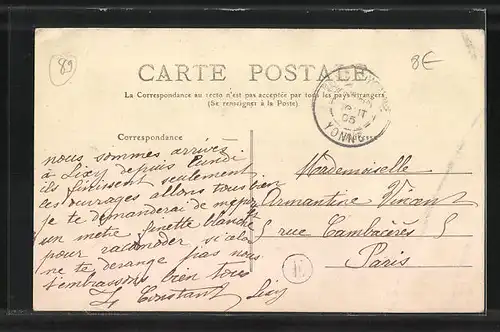 89
8E
CARTE POSTALE
La Correspondance au recto n'est pas acceptée par tous les pays étrangers
(Se renseigner à la Poste)
05
YONNE
Correspondance
nous sommes arrivés
à Lixy depuis lundi
ils finissent seulement
les ouvrages allons tous bien
je te demanderai de
un mètre finette blanche
pour racomoder, si cela
ne te dérange pas nous
t'embrassons bien tous
Constant Lixy
Mademoiselle
Armantine Vincent
5 rue Cambacérès 5
Paris
E